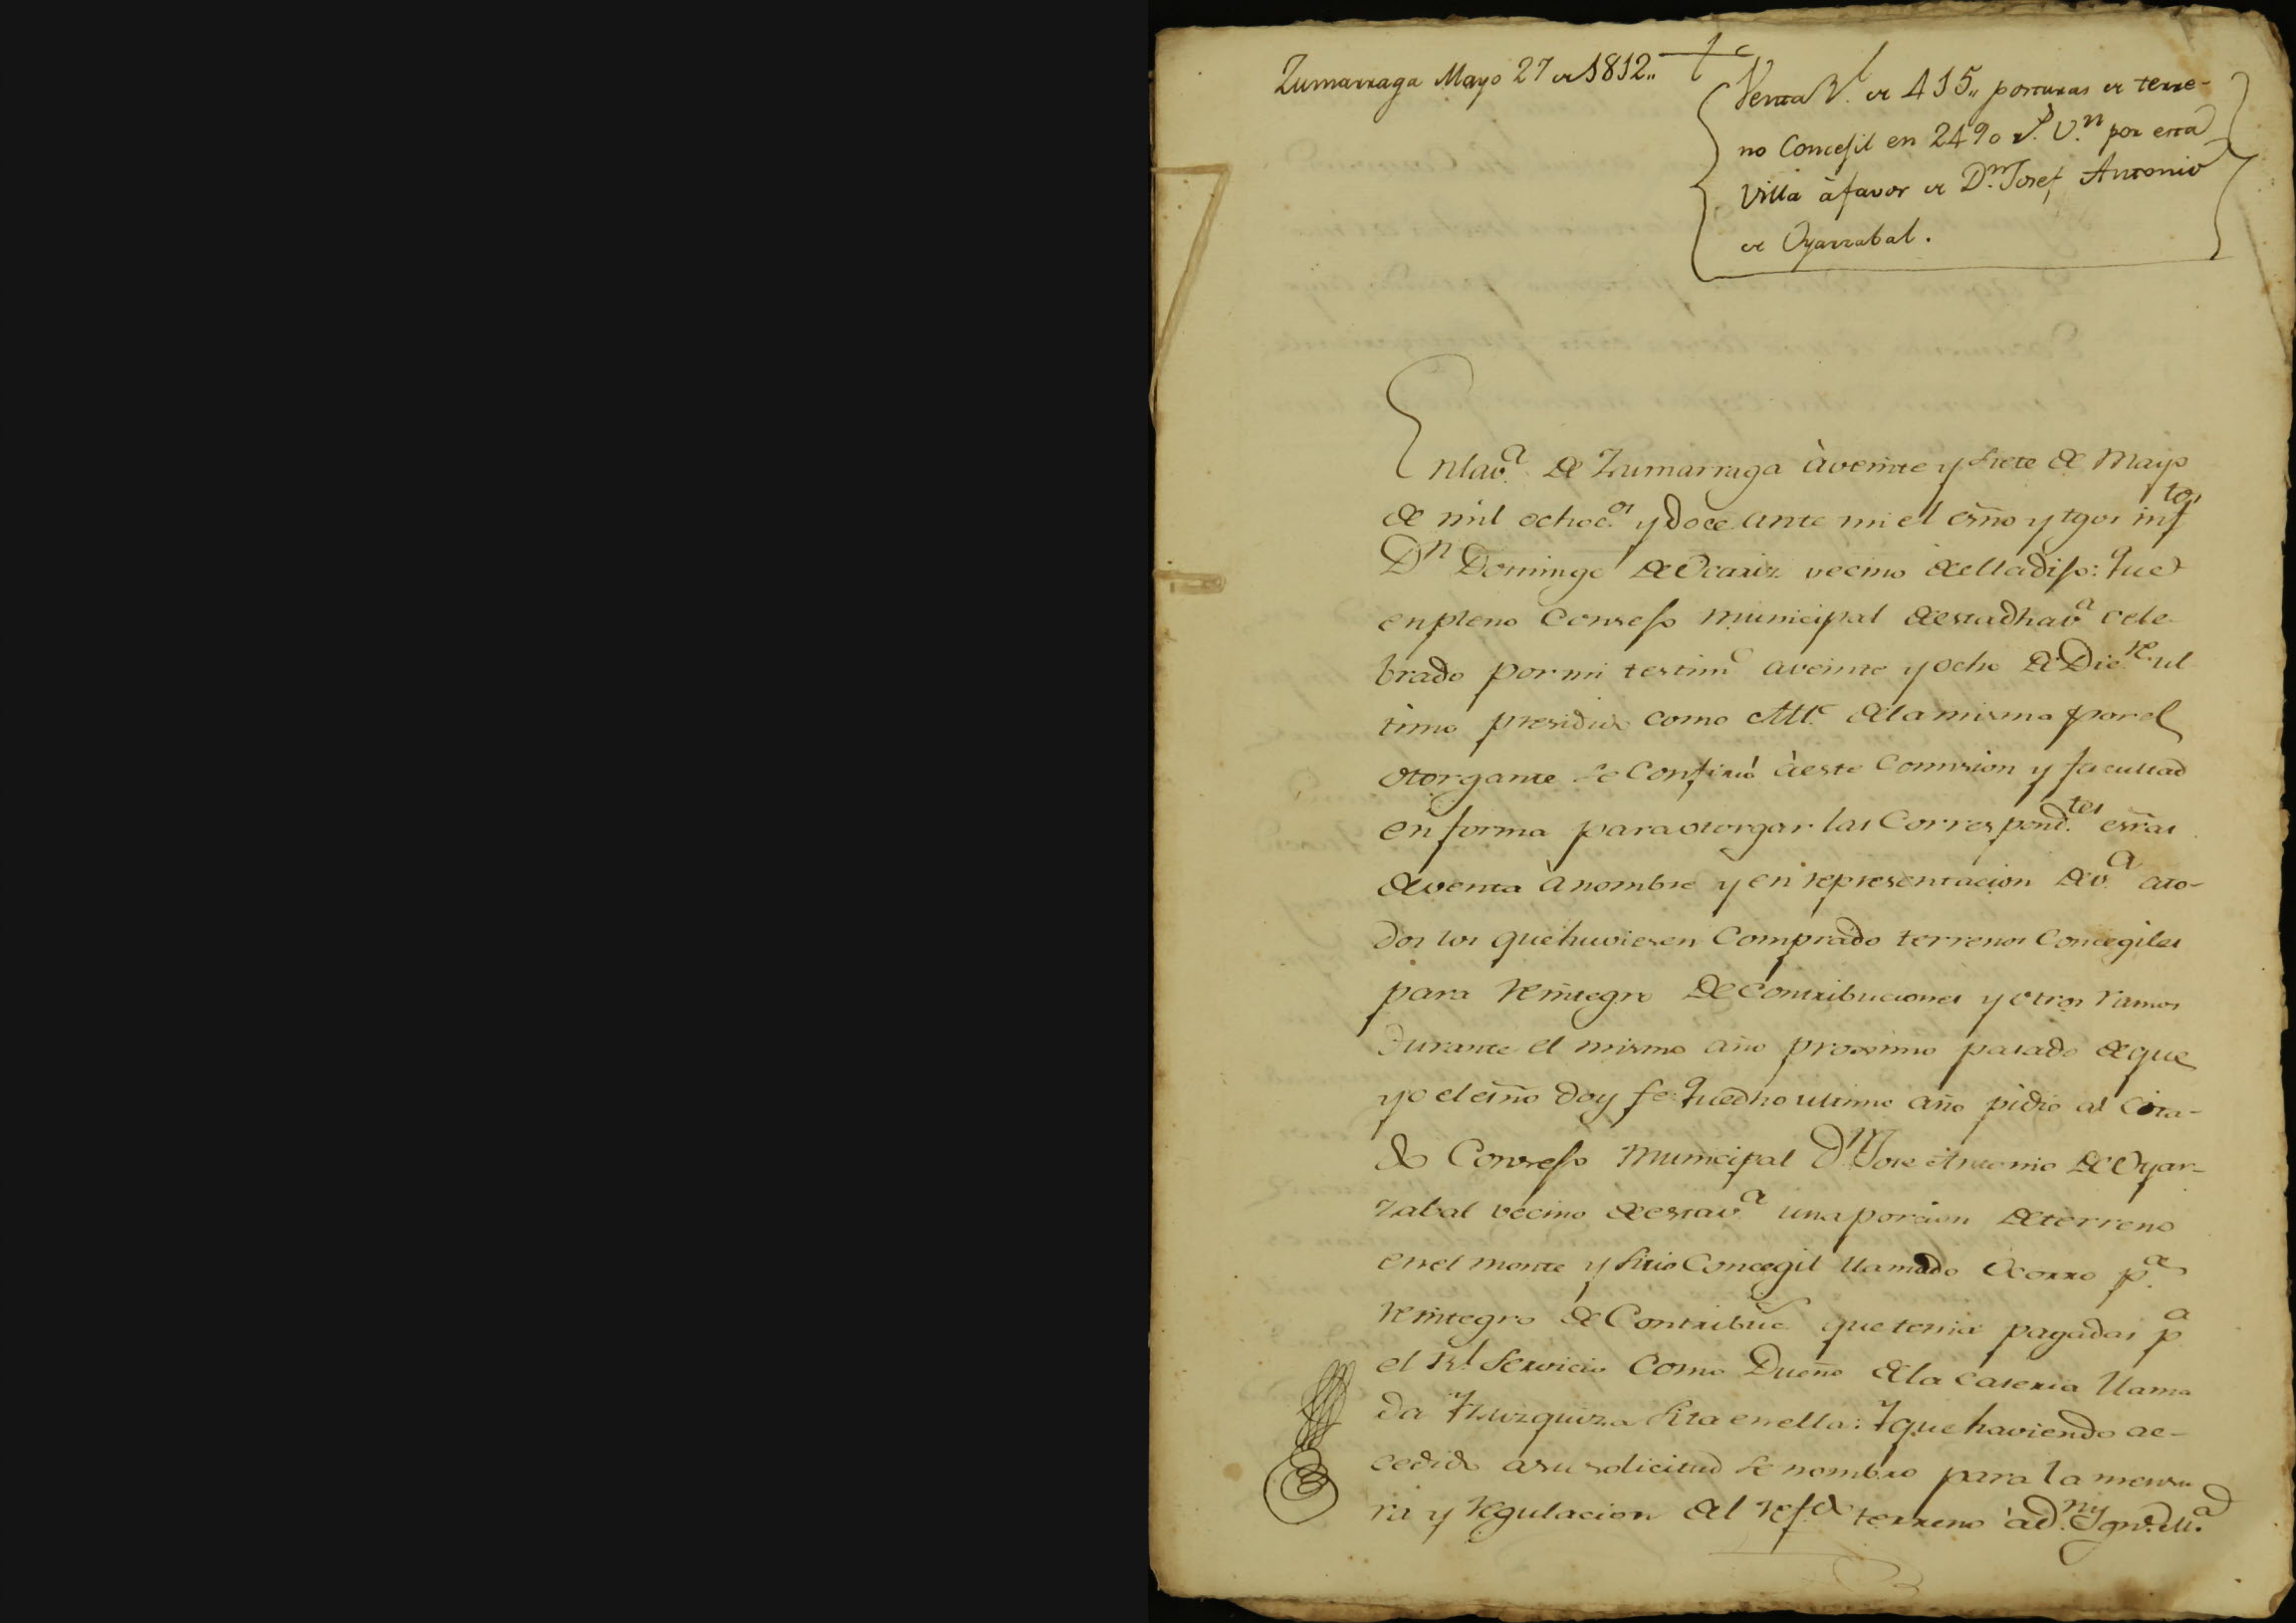 Zumarraga Mayo 27 de 1812..
Venta Rl. de 415,, posturas de terre-
no Concejil en 2490 rs. Vn. por esta
Villa à favor de Dn. Josef Antonio
de Oyarzabal.
En la va. de Zumarraga à veinte y siete de Mayo
de mil ochocos. y doce ante mi el esño y tgos inftos
Dn Domingo de Ocariz vecino de ella dijo: que
en pleno Consejo municipal de esta dha va cele-
brado por mi testimo a veinte y ocho de Dicre. ul
timo presidido como Alle. de la misma por el
otorgante se confirió à este Comision y facultad
en forma para otorgar las Correspondtes. esrãs
de venta à nombre y en representacion de va. a to-
dos los que huviesen Comprado terrenos Concegiles
para Reintegro de Contribuciones y otros ramos
durante el mismo año proximo pasado de que
yo el esño doy fe: que dho ultimo año pidió al Cita-
do Consejo Municipal Dn Jose Antonio de Oyar-
zabal vecino de esta va. una porcion de terreno
en el monte y sitio Concegil llamado Ocorro pa.
Reintegro de Contribuc. que tenia pagadas pa
el Rl. Servicio Como Dueño de la Caseria llama
da Yzuzquiza sita en ella: Y que haviendo ac-
cedido a su solicitud se nombró para la mensu
ra y Regulacion del Refdo terreno à Dn. Ygno.